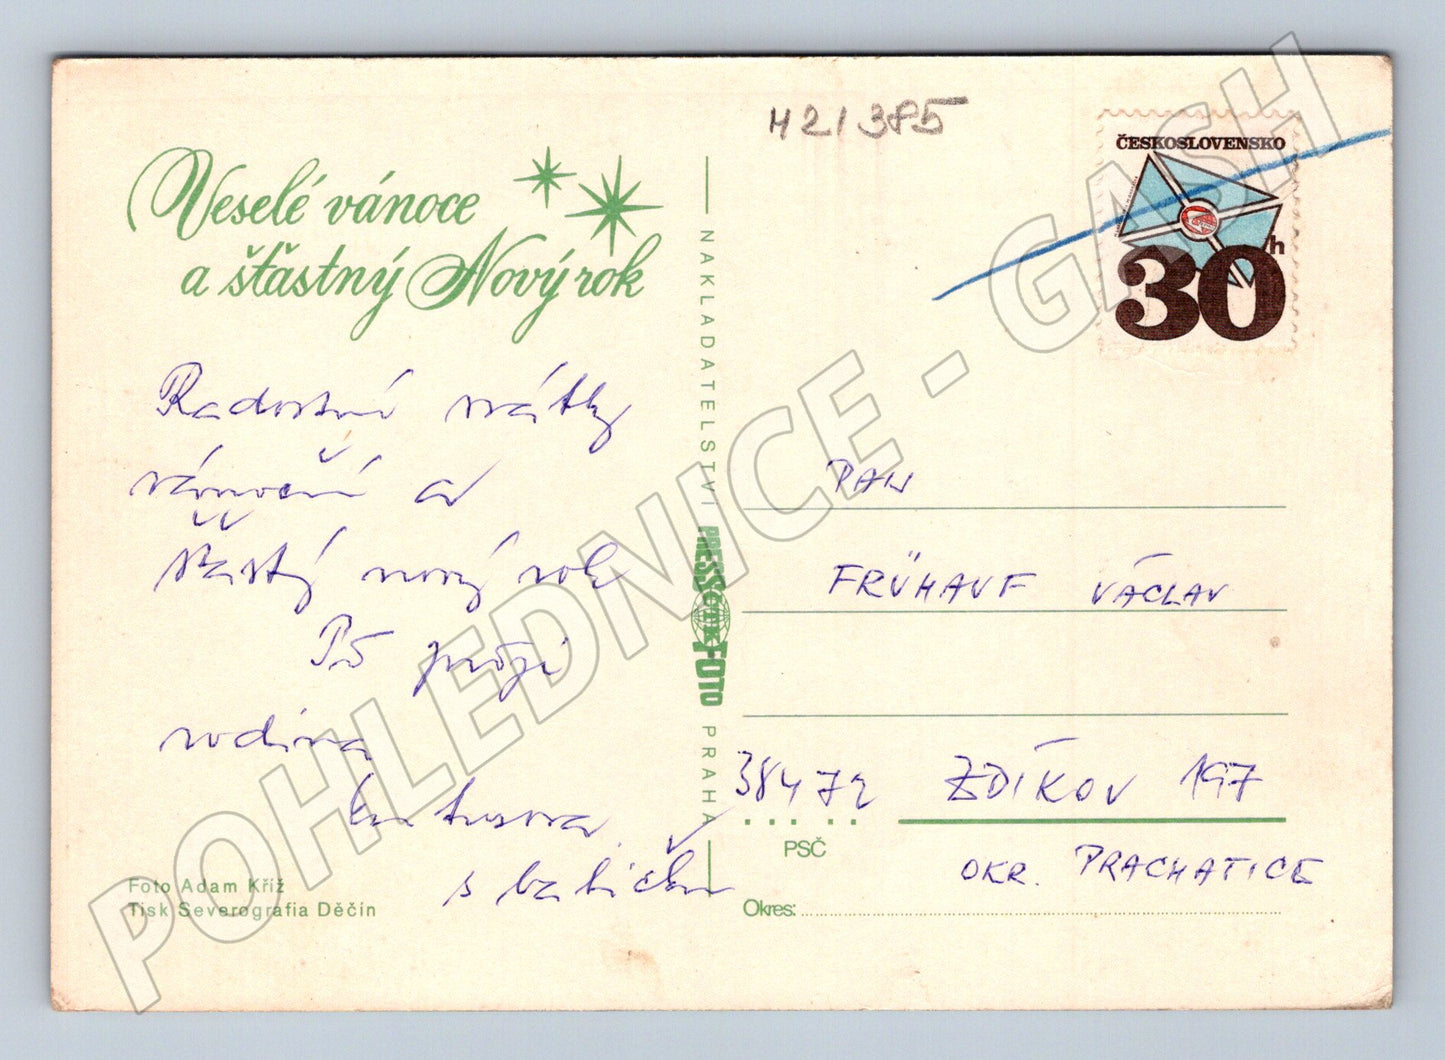 H21385
ČESKOSLOVENSKO
30h
Veselé vánoce
a šťastný Nový rok
Radostné svátky
vánoční a
šťastný nový rok
Vš přeje
rodina
s babičkou
Foto Adam Kříž
Tisk Severografia Děčín
NAKLADATELSTVÍ PRESSFOTO PRAHA
PAN
FRÜHAUF VÁCLAV
38472 ZDÍKOV 197
PSČ
OKR. PRACHATICE
Okres:
POHLEDNICE - GASH